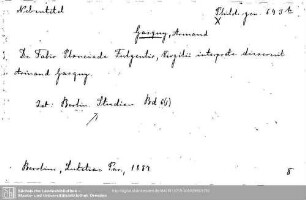 Nebentitel
Philol. gen. 698 th
Gasquy, Armand
De Fabio Planciade Fulgentio, Vergilii interprete disseruit
Armand Gasquy.
Berlin Studien Bd 6(1)
Berolini, Lutetiae Par., 1887
8
Sächsische Landesbibliothek -
Staats- und Universitätsbibliothek Dresden